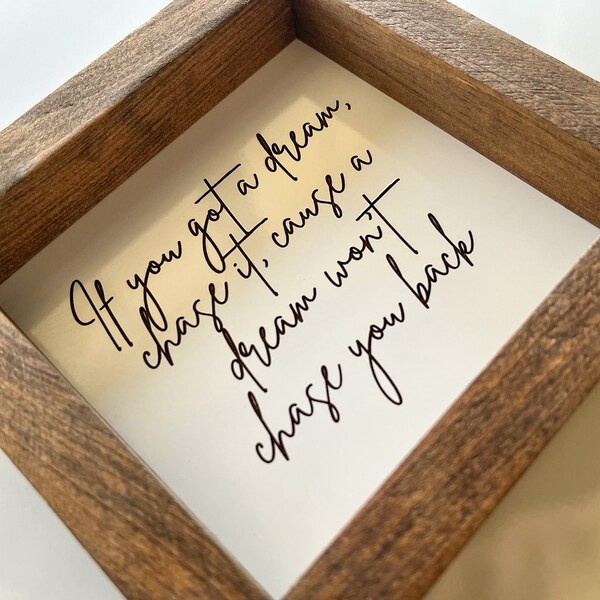 If you got a dream,
chase it, cause a
dream won't
chase you back